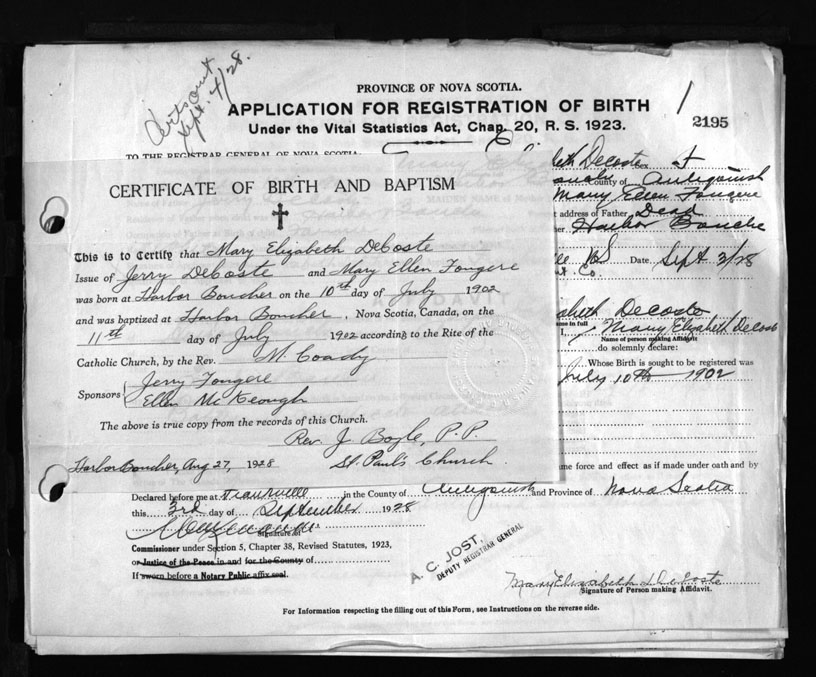 Sept. 4/28.
PROVINCE OF NOVA SCOTIA.
APPLICATION FOR REGISTRATION OF BIRTH
Under the Vital Statistics Act, Chap. 20, R. S. 1923.
1
2195
TO THE REGISTRAR GENERAL OF NOVA SCOTIA
CERTIFICATE OF BIRTH AND BAPTISM
This is to Certify that Mary Elizabeth DeCoste
Issue of Jerry DeCoste and Mary Ellen Fougere
was born at Harbor Boucher on the 10th day of July 1902
and was baptized at Harbor Boucher, Nova Scotia, Canada, on the
11th day of July 1902 according to the Rite of the
Catholic Church, by the Rev. M. Coady
Sponsors Jerry Fougere
Ellen McKeough
The above is true copy from the records of this Church.
Rev. J. Boyle, P. P.
Harbor Boucher, Aug 27, 1928 St. Paul's Church
eth DeCoste f
County of Antigonish
Mary Ellen Fougere
address of Father Dead
Harbor Bouche
Date Sept 3/28
Co.
abeth DeCoste
ame in full
I, Mary Elizabeth DeCoste
Name of person making Affidavit
do solemnly declare:
Whose Birth is sought to be registered was
July 10th 1902
ame force and effect as if made under oath and by
Declared before me at in the County of Antigonish and Province of Nova Scotia
this 3rd day of September 1928
Signature of
Commissioner under Section 5, Chapter 38, Revised Statutes, 1923,
or Justice of the Peace in and for the County of
If sworn before a Notary Public affix seal.
A. C. JOST,
DEPUTY REGISTRAR GENERAL
Mary Elizabeth DeCoste
Signature of Person making Affidavit.
For Information respecting the filling out of this Form, see Instructions on the reverse side.